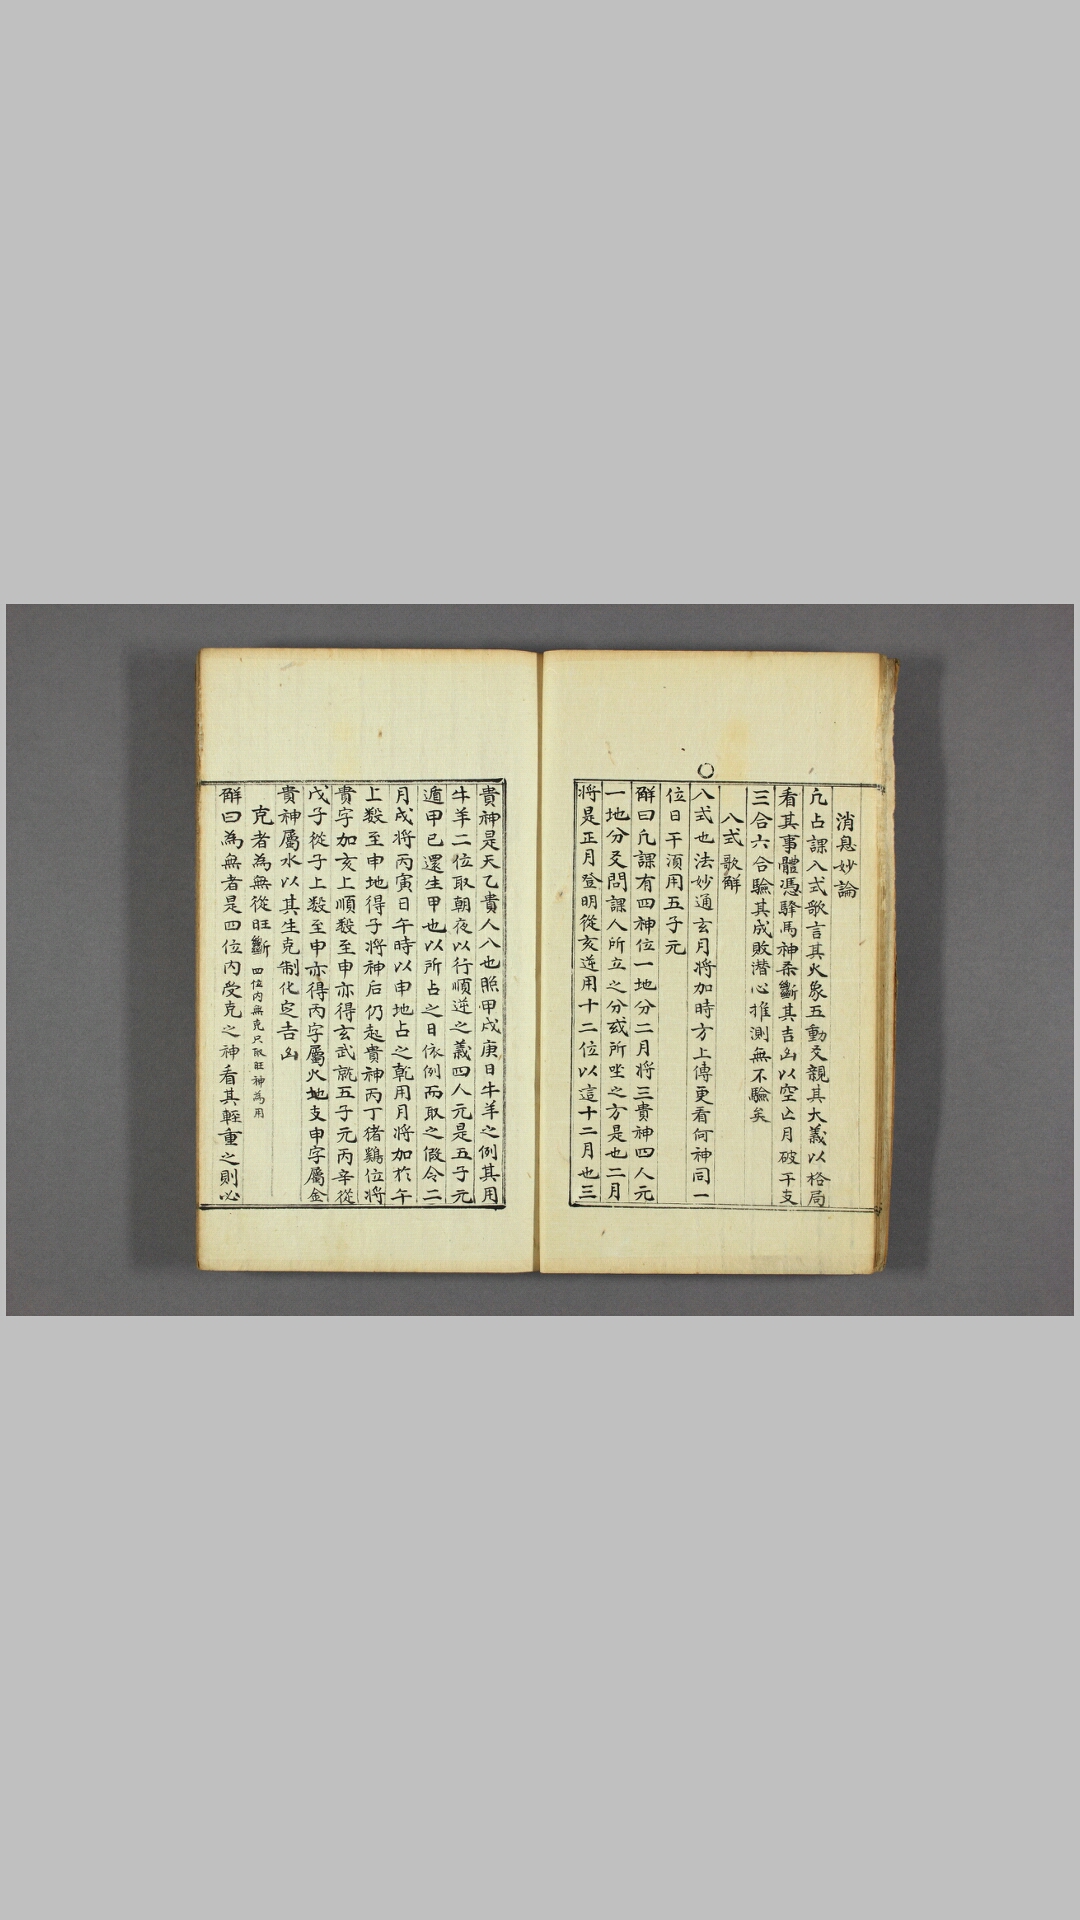 消息妙論
凢占課八式歌言其火象五動爻親其大義以格局
看其事體憑驛馬神柔斷其吉凶以空亾月破干支
三合六合驗其成敗潜心推測無不驗矣
八式歌觧
八式也法妙通玄月将加時方上傳更看何神同一
位日干湏用五子元
觧曰凢課有四神位一地分二月将三貴神四人元
一地分爻問課人所立之分或所坐之方是也二月
将是正月登明從亥逆用十二位以這十二月也三
貴神是天乙貴人八也照甲戊庚日牛羊之例其用
牛羊二位取朝夜以行順逆之義四人元是五子元
遁甲已還生甲也以所占之日依例而取之假令二
月戌将丙寅日午時以申地占之乾用月将加於午
上殺至申地得子将神后仍起貴神丙丁猪鷄位将
貴字加亥上順殺至申亦得玄武就五子元丙辛從
戊子從子上殺至申亦得丙字屬火地支申字屬金
貴神屬水以其生克制化定吉凶
克者為無從旺斷 四位内無克只取旺神為用
觧曰為無者是四位内受克之神看其輕重之則必